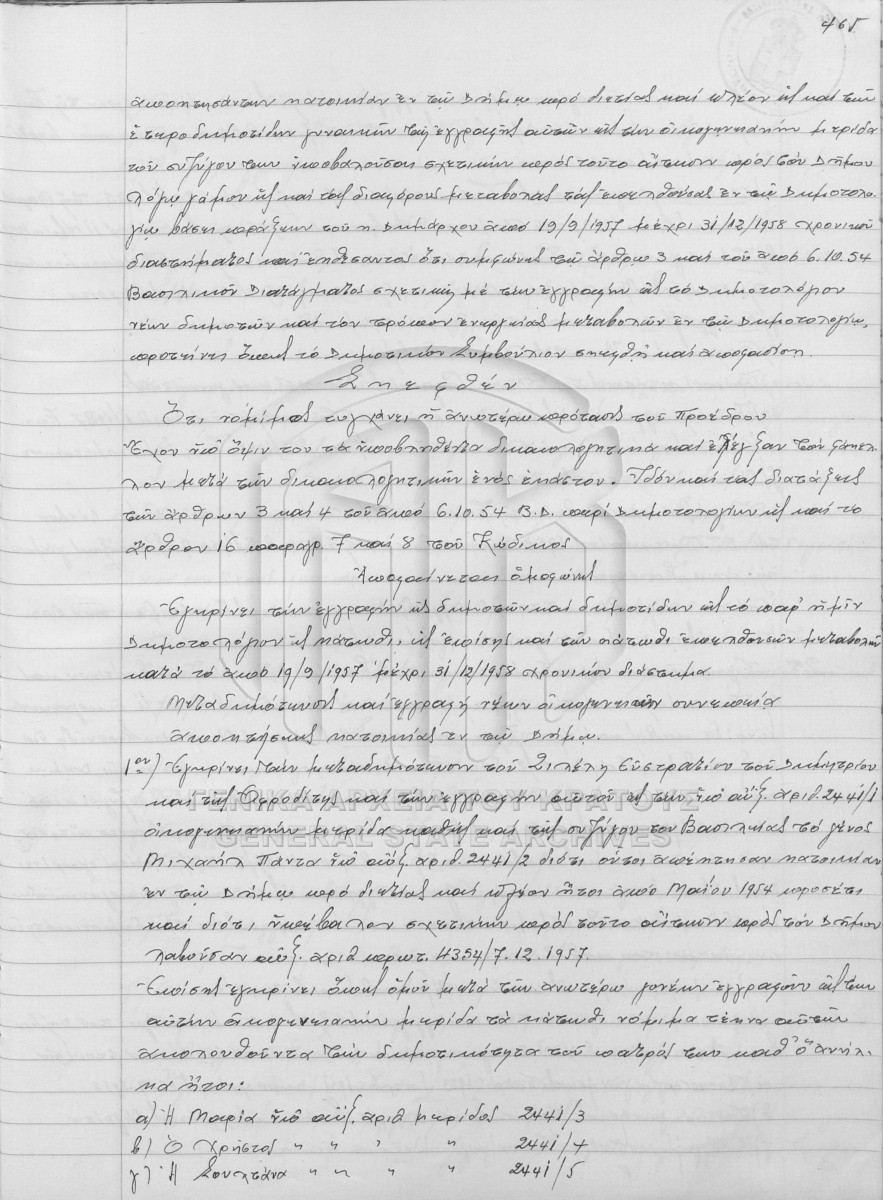 465
ἀποκτησάντων κατοικίαν ἐν τῷ Δήμῳ πρό διετίας καί πλέον ὡς καί τῶν
ἑτεροδημοτίδων γυναικῶν τῆς ἐγγραφῆς αὐτῶν εἰς τήν οἰκογενειακήν μερίδα
τοῦ συζύγου των ὑποβαλοῦσαι σχετικήν πρός τοῦτο αἴτησιν πρός τόν Δῆμον
λόγῳ γάμου ὡς καί τάς διαφόρους μεταβολάς τάς ἐπελθούσας ἐν τῷ Δημοτολο-
γίῳ βάσει πράξεων τοῦ κ. Δημάρχου ἀπό 19/9/1957 μέχρι 31/12/1958 χρονικοῦ
διαστήματος καί ἐκθέσαντος ὅτι συμφώνως τῷ ἄρθρῳ 3 καί τοῦ ἀπό 6.10.54
Βασιλικοῦ Διατάγματος σχετικῶς μέ τήν ἐγγραφήν εἰς τό Δημοτολόγιον
νέων δημοτῶν καί τόν τρόπον ἐνεργείας μεταβολῶν ἐν τῷ Δημοτολογίῳ,
προτείνει ὅπως τό Δημοτικόν Συμβούλιον σκεφθῇ καί ἀποφασίσῃ.
Σκεφθέν
Ὅτι νομίμως τυγχάνει ἡ ἀνωτέρω πρότασις τοῦ Προέδρου
Ἔχον ὑπ' ὄψιν του τά ὑποβληθέντα δικαιολογητικά καί ἐλέγξαν τόν φάκελ-
λον μετά τῶν δικαιολογητικῶν ἑνός ἑκάστου. Ἰδόν καί τάς διατάξεις
τῶν ἄρθρων 3 καί 4 τοῦ ἀπό 6.10.54 Β.Δ. περί Δημοτολογίων ὡς καί τό
ἄρθρον 16 παραγρ. 7 καί 8 τοῦ Κώδικος
Ἀποφαίνεται ὁμοφώνως
Ἐγκρίνει τήν ἐγγραφήν ὡς δημοτῶν καί δημοτίδων εἰς τό παρ' ἡμῖν
Δημοτολόγιον ὡς κάτωθι, ὡς ἐπίσης καί τῶν κάτωθι ἐπελθουσῶν μεταβολῶν
κατά τό ἀπό 19/9/1957 μέχρι 31/12/1958 χρονικόν διάστημα.
Μεταδημότευσις καί ἐγγραφή νέων οἰκογενειῶν συνεπείᾳ
ἀποκτήσεως κατοικίας ἐν τῷ Δήμῳ.
1ον) Ἐγκρίνει τήν μεταδημότευσιν τοῦ Σιλέλη Εὐστρατίου τοῦ Δημητρίου
καί τῆς Ἀφροδίτης καί τήν ἐγγραφήν αὐτοῦ εἰς τήν ὑπ' αὔξ. ἀριθ. 2441/1
οἰκογενειακήν μερίδα καθώς καί τῆς συζύγου του Βασιλείας τό γένος
Μιχαήλ Πάντα ὑπ' αὔξ. ἀριθ. 2441/2 διότι οὗτοι ἀπέκτησαν κατοικίαν
ἐν τῷ Δήμῳ πρό διετίας καί πλέον ἤτοι ἀπό Μαΐου 1954 προσέτι
καί διότι ὑπέβαλον σχετικήν πρός τοῦτο αἴτησιν πρός τόν Δῆμον
λαβοῦσαν αὔξ. ἀριθ. πρωτ. 4354/7.12.1957.
Ἐπίσης ἐγκρίνει ὅπως ὁμοῦ μετά τῶν ἀνωτέρω γονέων ἐγγραφοῦν εἰς τήν
αὐτήν οἰκογενειακήν μερίδα τά κάτωθι νόμιμα τέκνα αὐτῶν
ἀκολουθοῦντα τήν δημοτικότητα τοῦ πατρός των καθ' ὅ ἀνήλι-
κα ἤτοι:
α) Ἡ Μαρία ὑπ' αὔξ. ἀριθ. μερίδος 2441/3
β) Ὁ Χρῆστος " " " " 2441/4
γ) Ἡ Σουλτάνα " " " " 2441/5
ΓΕΝΙΚΑ ΑΡΧΕΙΑ ΤΟΥ ΚΡΑΤΟΥΣ
GENERAL STATE ARCHIVES